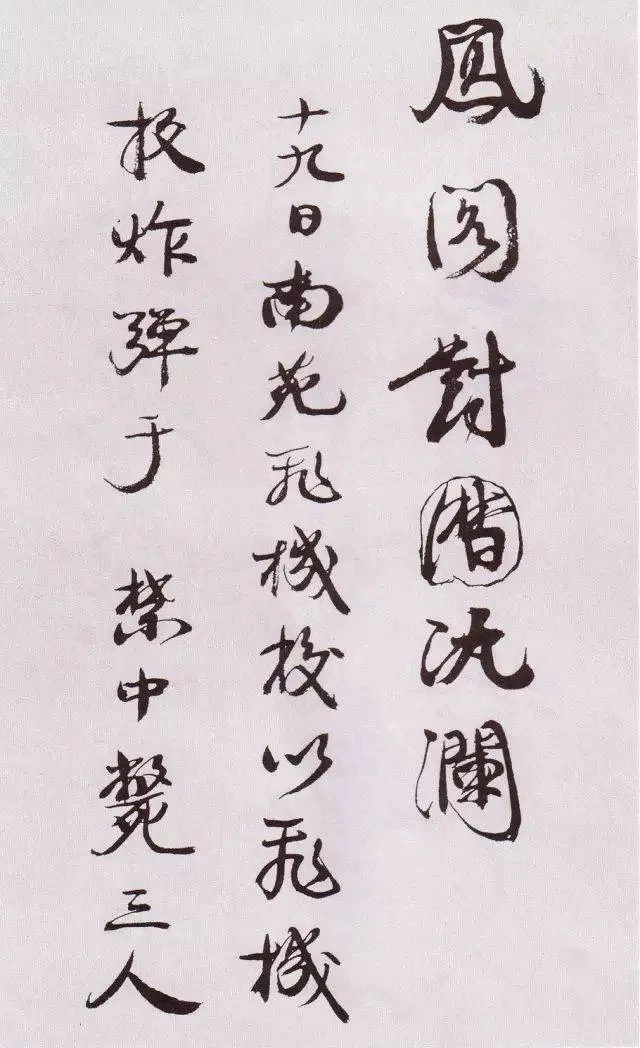 鳳閣對汍瀾
十九日南苑飛機校以飛機
投炸彈于 禁中斃三人